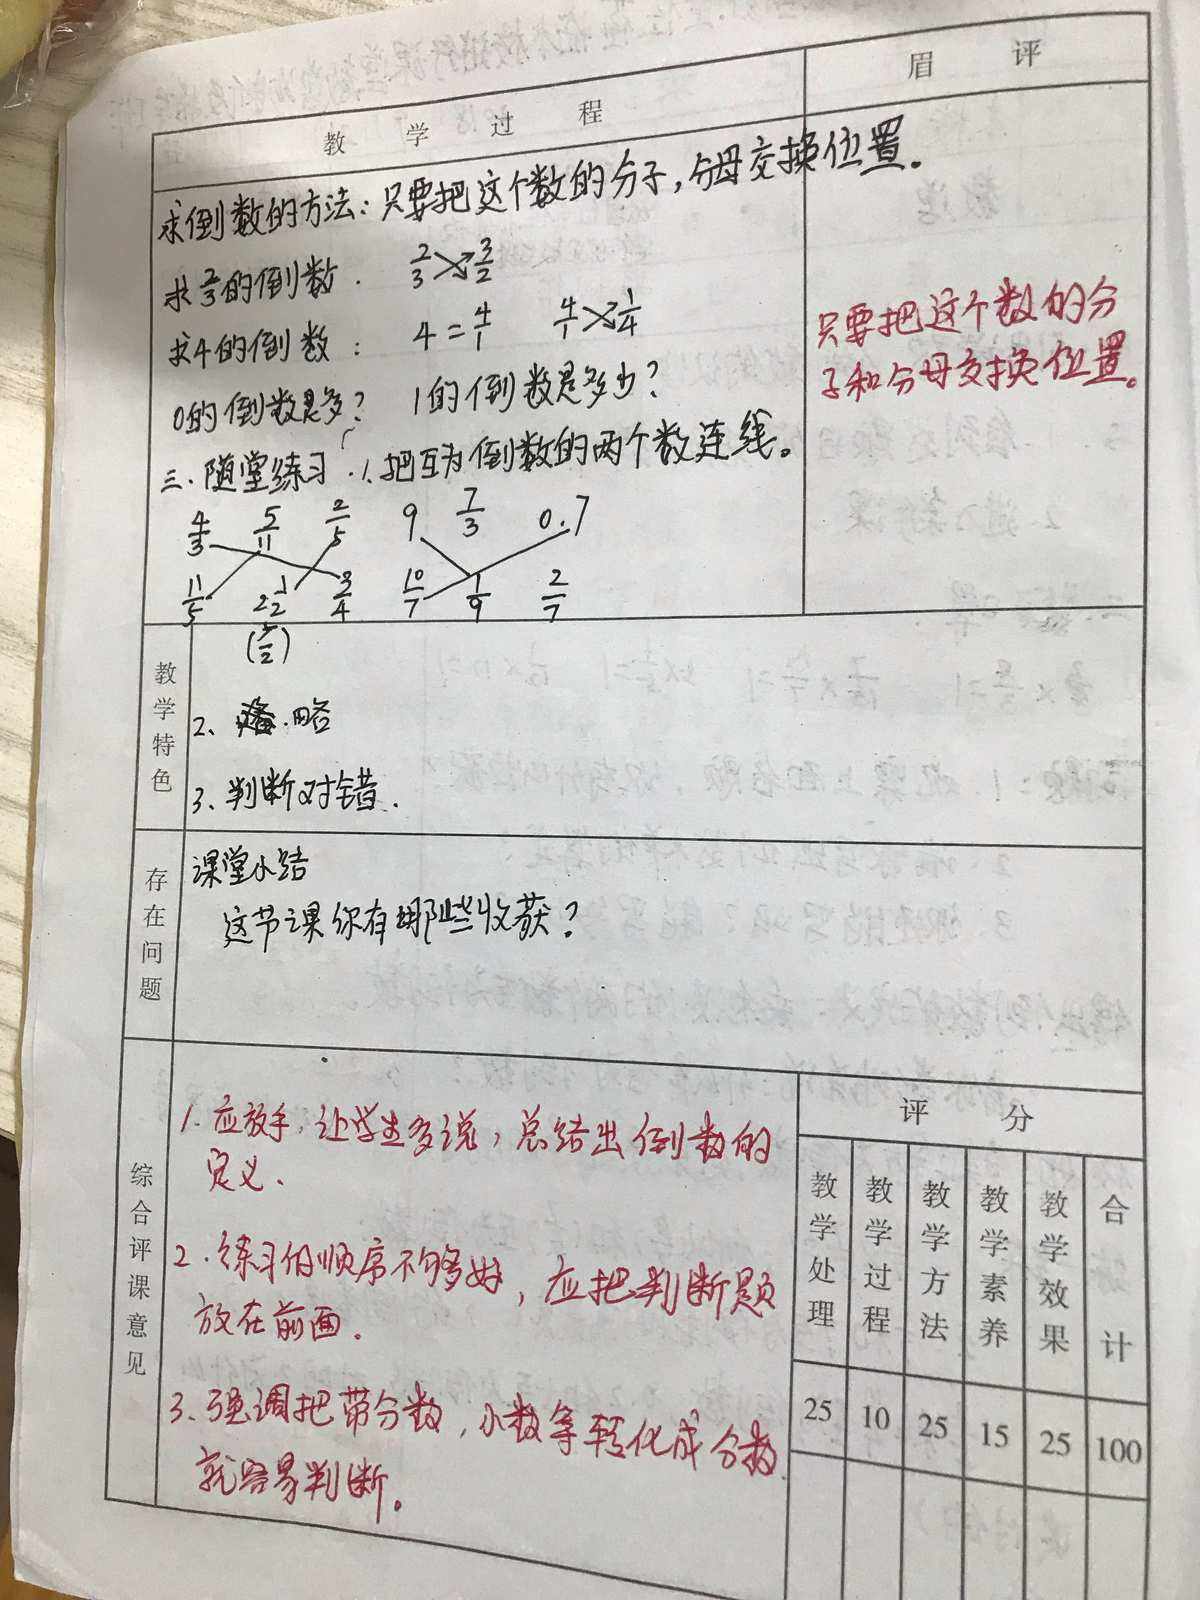 教学过程
眉评
求倒数的方法：只要把这个数的分子，分母交换位置。
求2/3的倒数. 2/3 3/2
求4的倒数： 4=4/1 4/1 1/4
0的倒数是多? 1的倒数是多少?
三.随堂练习.1.把互为倒数的两个数连线。
4/3 5/11 2/5 9 7/3 0.7
11/5 2 1/2 3/4 10/7 1/9 2/7
(5/2)
只要把这个数的分
子和分母交换位置。
教学特色
2、略
3、判断对错.
存在问题
课堂小结
这节课你有哪些收获?
综合评课意见
1.应放手,让学生多说,总结出倒数的
定义.
2.练习的顺序不够好,应把判断题
放在前面.
3.强调把带分数,小数等转化成分数
就容易判断。
评分
教学处理 教学过程 教学方法 教学素养 教学效果 合计
25 10 25 15 25 100